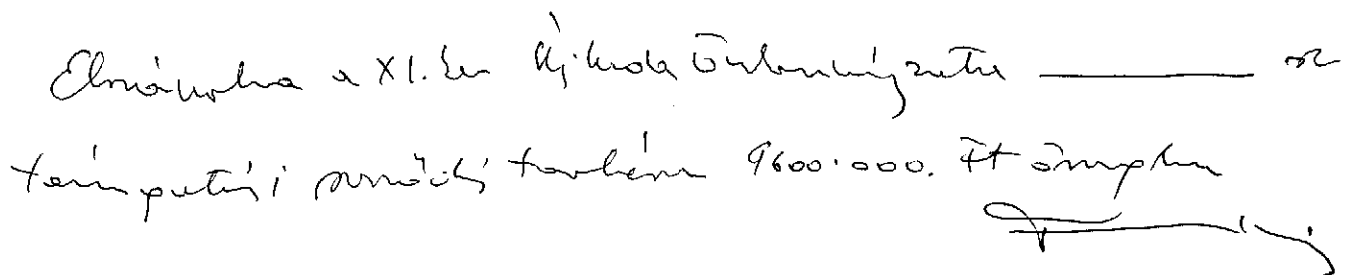 Elszámolva a XI. ker Újbuda Önkormányzata ______ sz
támogatási szerződés terhére 9600.000. Ft összegben